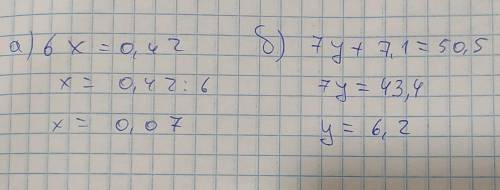 а) 6 x = 0,42
x = 0,42 : 6
x = 0,07
б) 7y + 7,1 = 50,5
7y = 43,4
y = 6,2